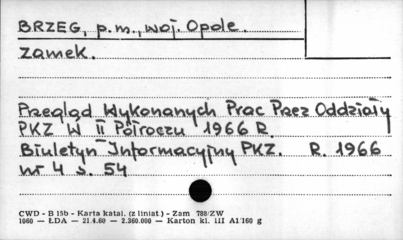 BRZEG, p.m., woj. Opole.
Zamek.
Przegląd Wykonanych Prac Przez Oddziały
PKZ W II Półroczu 1966 R.
Biuletyn Informacyjny PKZ. R. 1966
nr 4 s. 54
CWD - B 15b - Karta katal. (z liniat.) - Zam 788/ZW
1060 — ŁDA — 21.4.60 — 2.360.000 — Karton kl. III A1/160 g